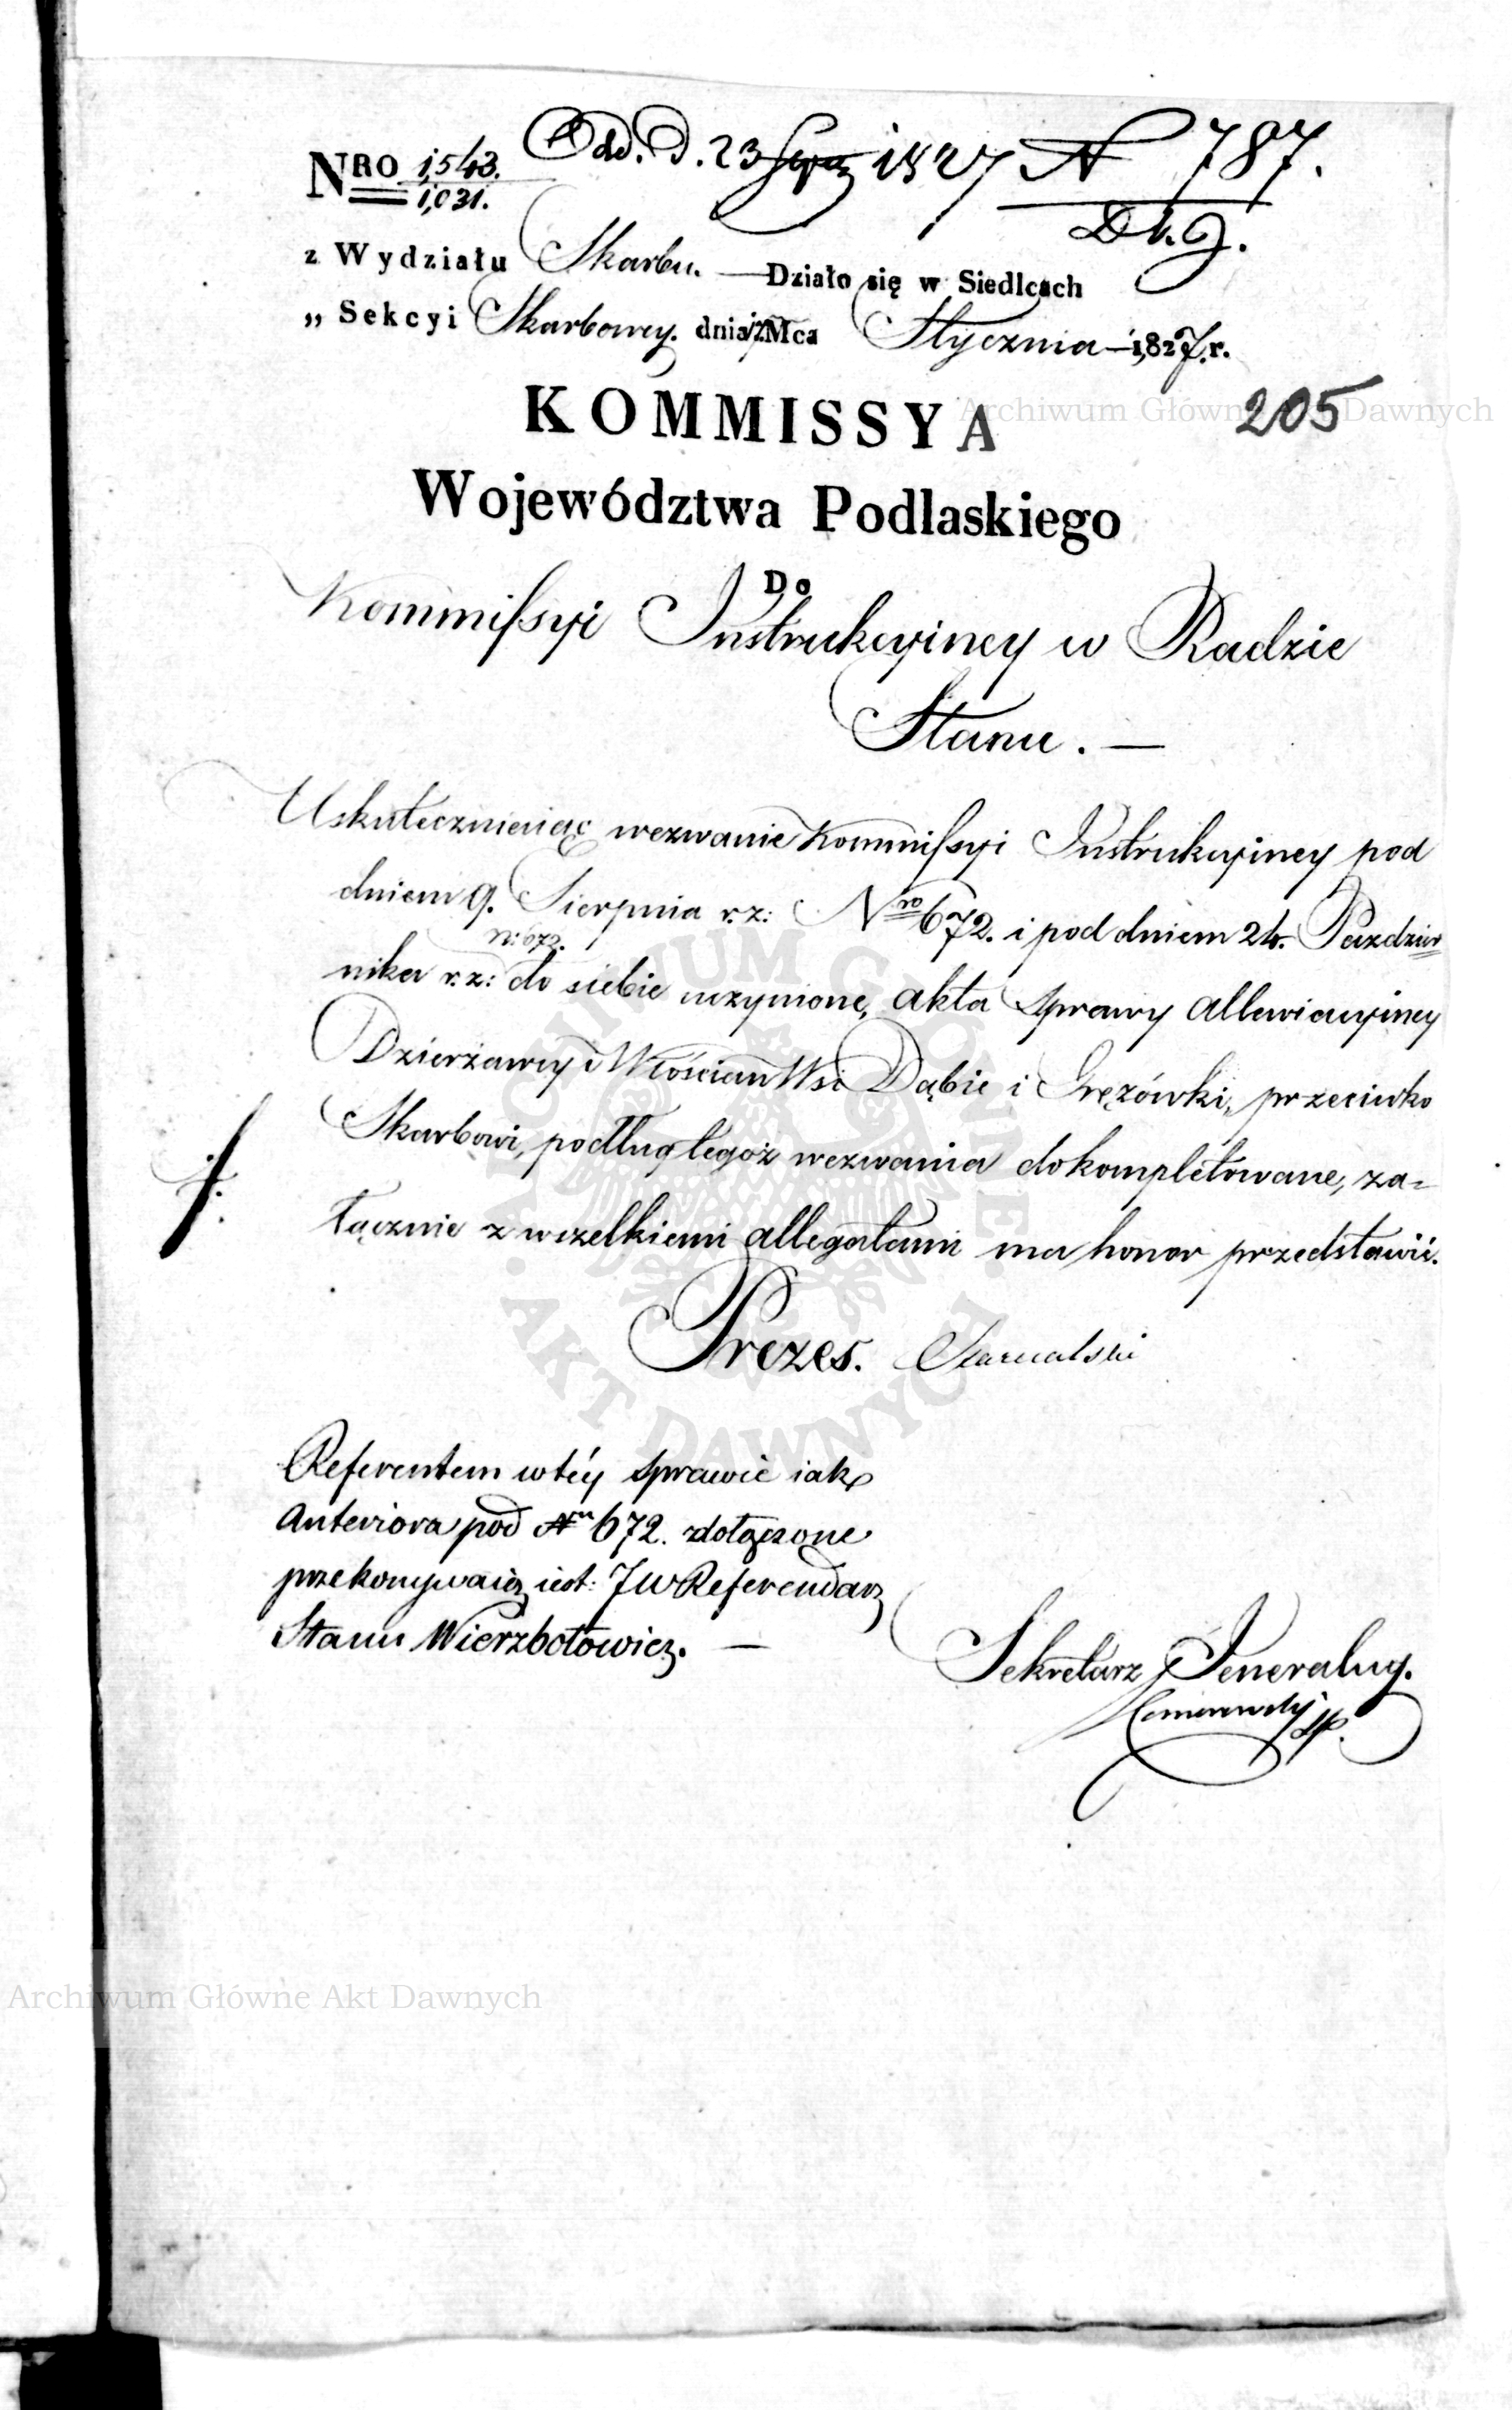 Odd. D. 23 Stycz 1827 N 787.
NRO 1,543.
1,031.
D. G.
z Wydziału Skarbu. — Działo się w Siedlcach
„ Sekcyi Skarbowey. dnia 12 Mca Stycznia — 1,827. r.
205
KOMMISSYA
Województwa Podlaskiego
Do
Kommissyi Instrukcyiney w Radzie
Stanu. —
Uskuteczniaiąc wezwanie Kommissyi Instrukcyiney pod
dniem 9. Sierpnia r. z: Nro 672. i pod dniem 24. Pazdzier
N: 672.
nika r. z: do siebie uczynione, akta sprawy allewiacyiney
Dzierżawcy i Włościan Wsi Dąbie i Gręzówki, przeciwko
Skarbowi, podług tegoż wezwania dokompletowane, za=
łącznie z wszelkiemi allegatami ma honor przedstawić.
Prezes.
Referentem w téy sprawie iak
Anteriora pod Nr 672. dołączone
przekonywaią iest: JW Referendarz
Stanu Wierzbołowicz. —
Sekretarz Jeneralny.
Archiwum Główne Akt Dawnych
ARCHIWUM GŁÓWNE AKT DAWNYCH
Archiwum Główne Akt Dawnych